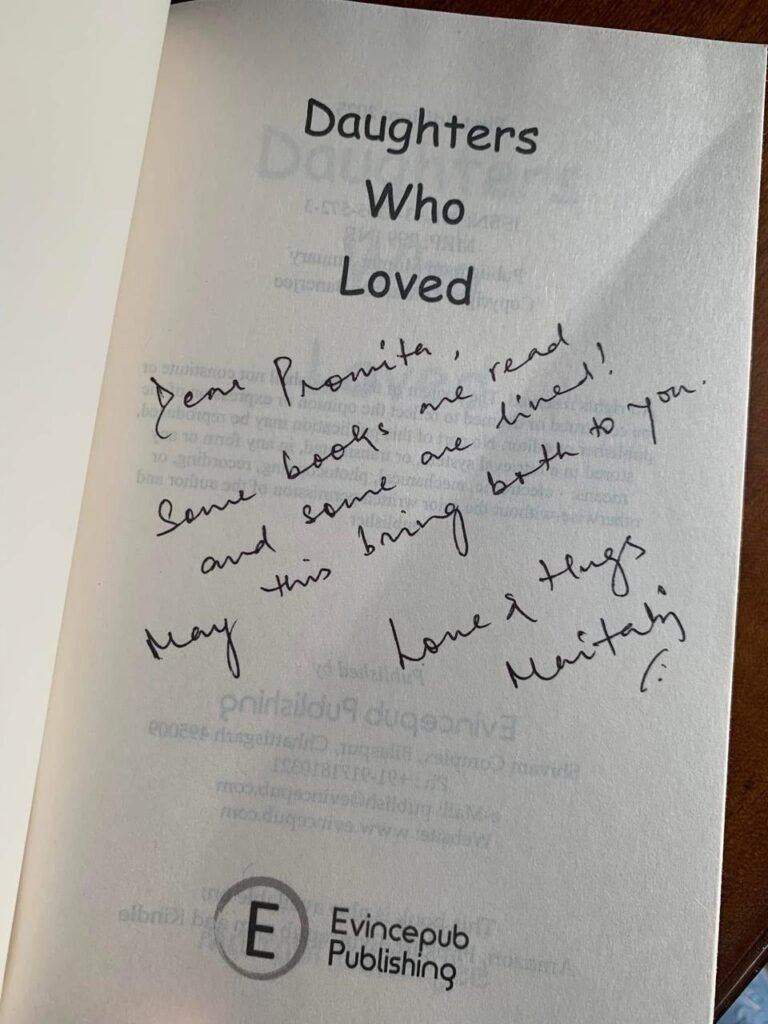 Daughters
Who
Loved
Dear Promita,
Some books are read
and some are lived!
May this bring both to you.
Love & Hugs
Evincepub
Publishing